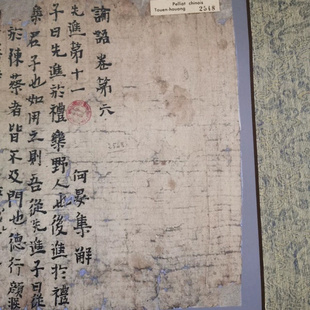 Pelliot chinois
Touen-houang
2548
論語卷第六
先進第十一 何晏集解
子曰先進於禮樂野人也後進於禮
樂君子也如用之則吾從先進子曰從
於陳蔡者皆不及門也德行顏淵